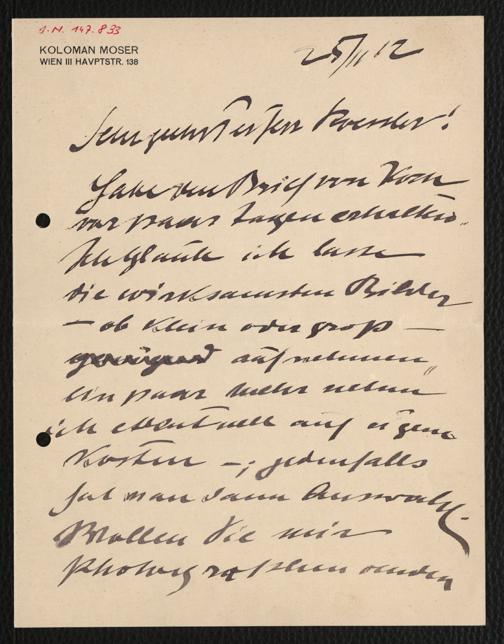 J.N. 147.833
KOLOMAN MOSER
WIEN III HAVPTSTR. 138
25/II 12
Sehr geehrter Herr Roessler!
Habe den Brief von Koch
vor paar Tagen erhalten.
Ich glaube ich lasse
die wirksamsten Bilder
– ob klein oder groß –
aufnehmen
ein paar mehr nehme
ich eventuell auf eigene
Kosten –; jedenfalls
hat man dann Auswahl.
Wollen Sie mir
Photographen senden